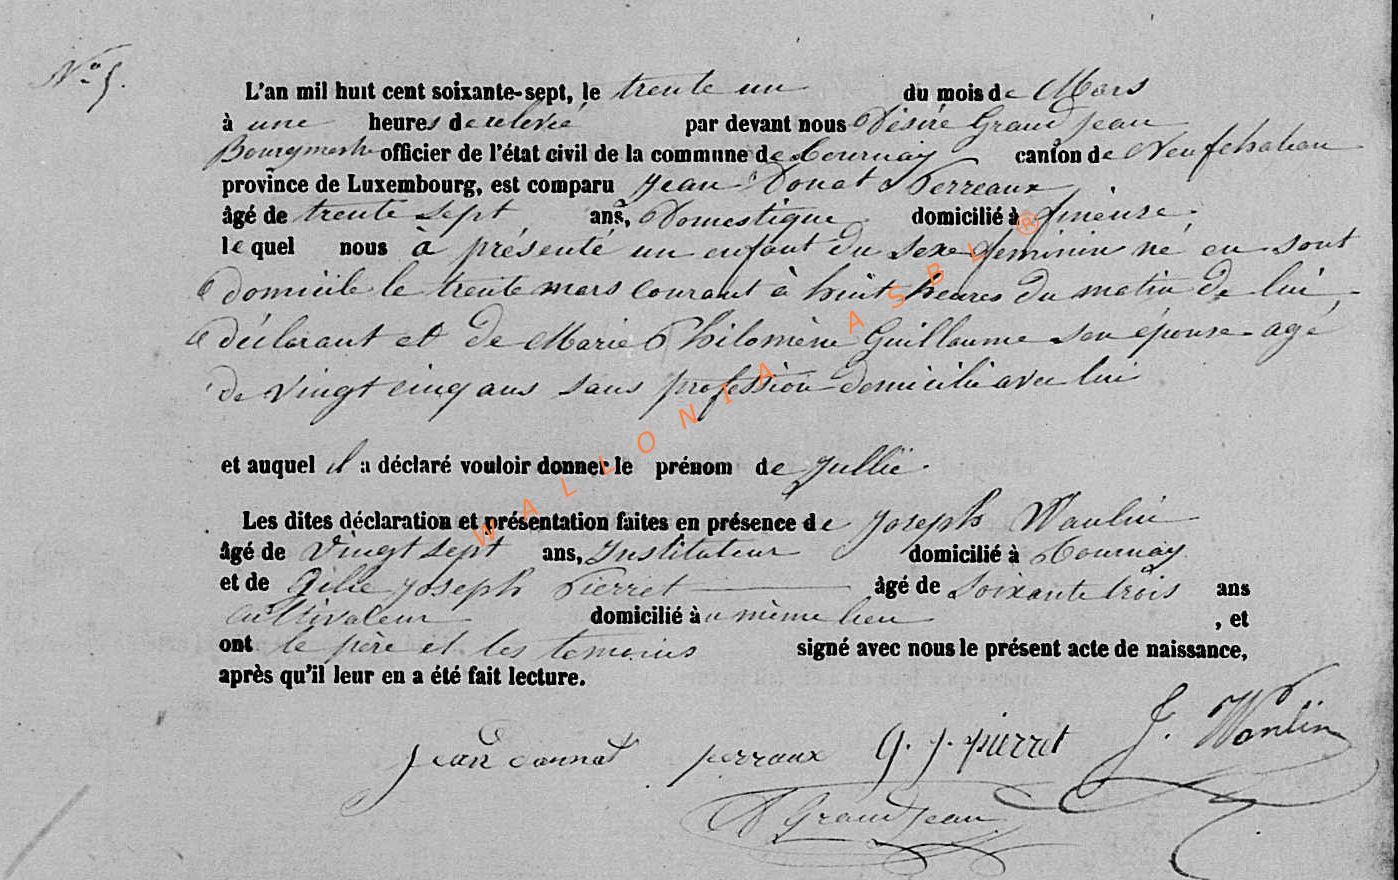 N° 5.
L'an mil huit cent soixante-sept, le trente un du mois de Mars
à une heures de relevée par devant nous Désiré Grandjean
Bourgmestre officier de l'état civil de la commune de Tournay canton de Neufchateau
province de Luxembourg, est comparu Jean Donat Perreaux
âgé de trente sept ans, Domestique domicilié à
lequel nous à présenté un enfant du sexe feminin né en sont
domicile le trente mars courant à huit heures du matin de lui
déclarant et de Marie Philomène Guillaume son épouse agé
de vingt cinq ans sans profession domicilié avec lui
et auquel il a déclaré vouloir donner le prénom de Jullie.
Les dites déclaration et présentation faites en présence de Joseph Wanlin
âgé de vingt sept ans, Instituteur domicilié à Tournay
et de Gille Joseph Pierret âgé de soixante trois ans
cultivateur domicilié au même lieu, et
ont le père et les temoins signé avec nous le présent acte de naissance,
après qu'il leur en a été fait lecture.
Jean donnat perraux G. J. pierret J. Wanlin
D Grandjean
WALLONIA ASBL ®